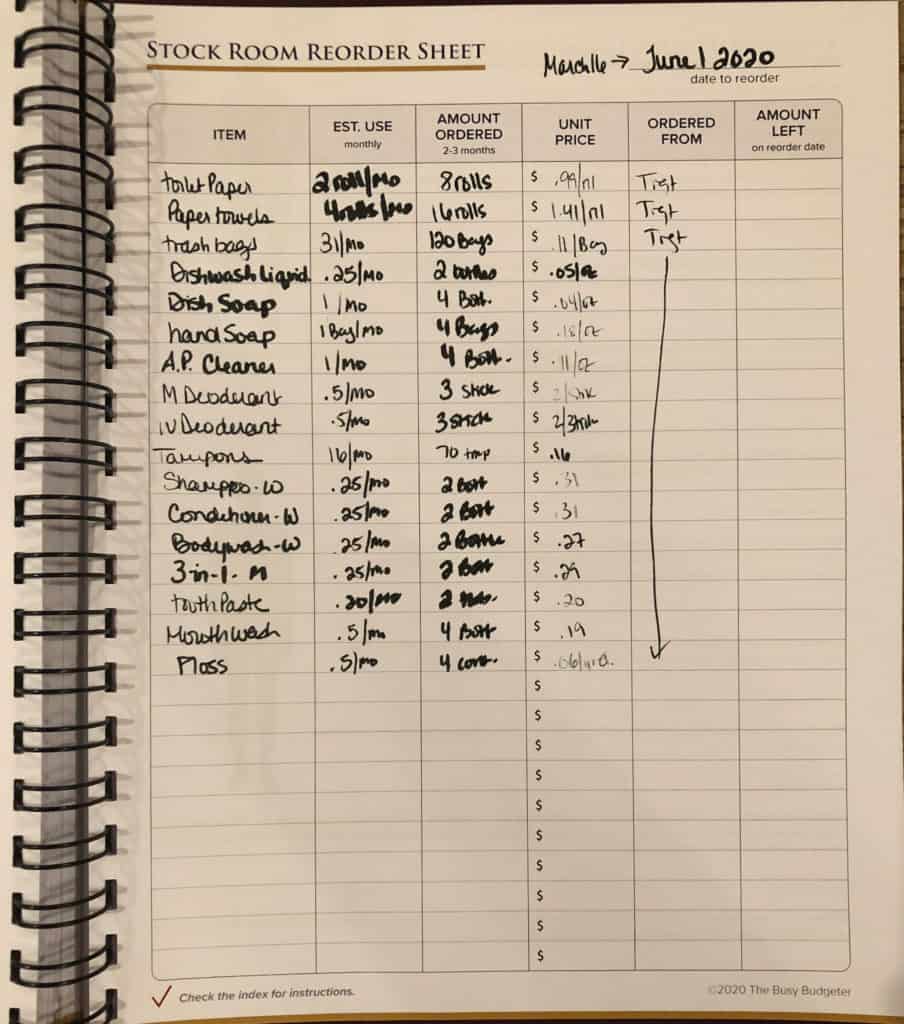 STOCK ROOM REORDER SHEET
March 16 → June 1 2020
date to reorder
ITEM EST. USE monthly AMOUNT ORDERED 2-3 months UNIT PRICE ORDERED FROM AMOUNT LEFT on reorder date
toilet Paper 2 roll/mo 8 rolls $ .99/rl Trgt
Paper towels 4 rolls/mo 16 rolls $ 1.41/rl Trgt
trash bags 31/mo 120 Bags $ .11/Bag Trgt
Dishwash Liquid .25/mo 2 $ .05/oz
Dish Soap 1/mo 4 Bot. $ .04/oz
hand Soap 1 Bag/mo 4 Bags $ .18/oz
A.P. Cleaner 1/mo 4 Bott. $ .11/oz
M Deoderant .5/mo 3 Stick $ 2/stik
W Deoderant .5/mo 3 Stick $
Tampons 16/mo 70 tmp $ .16
Shampoo-W .25/mo 2 Bott $ .31
Conditioner-W .25/mo 2 Bott $ .31
Bodywash-W .25/mo 2 Bottle $ .27
3-in-1-M .25/mo 2 Bott $ .29
touthPaste .20/mo 2 $ .20
Mouthwash .5/mo 4 Bott $ .19
Floss .5/mo 4 cont. $ .06/yrd.
$
$
$
$
$
$
$
$
$
$
Check the index for instructions.
©2020 The Busy Budgeter